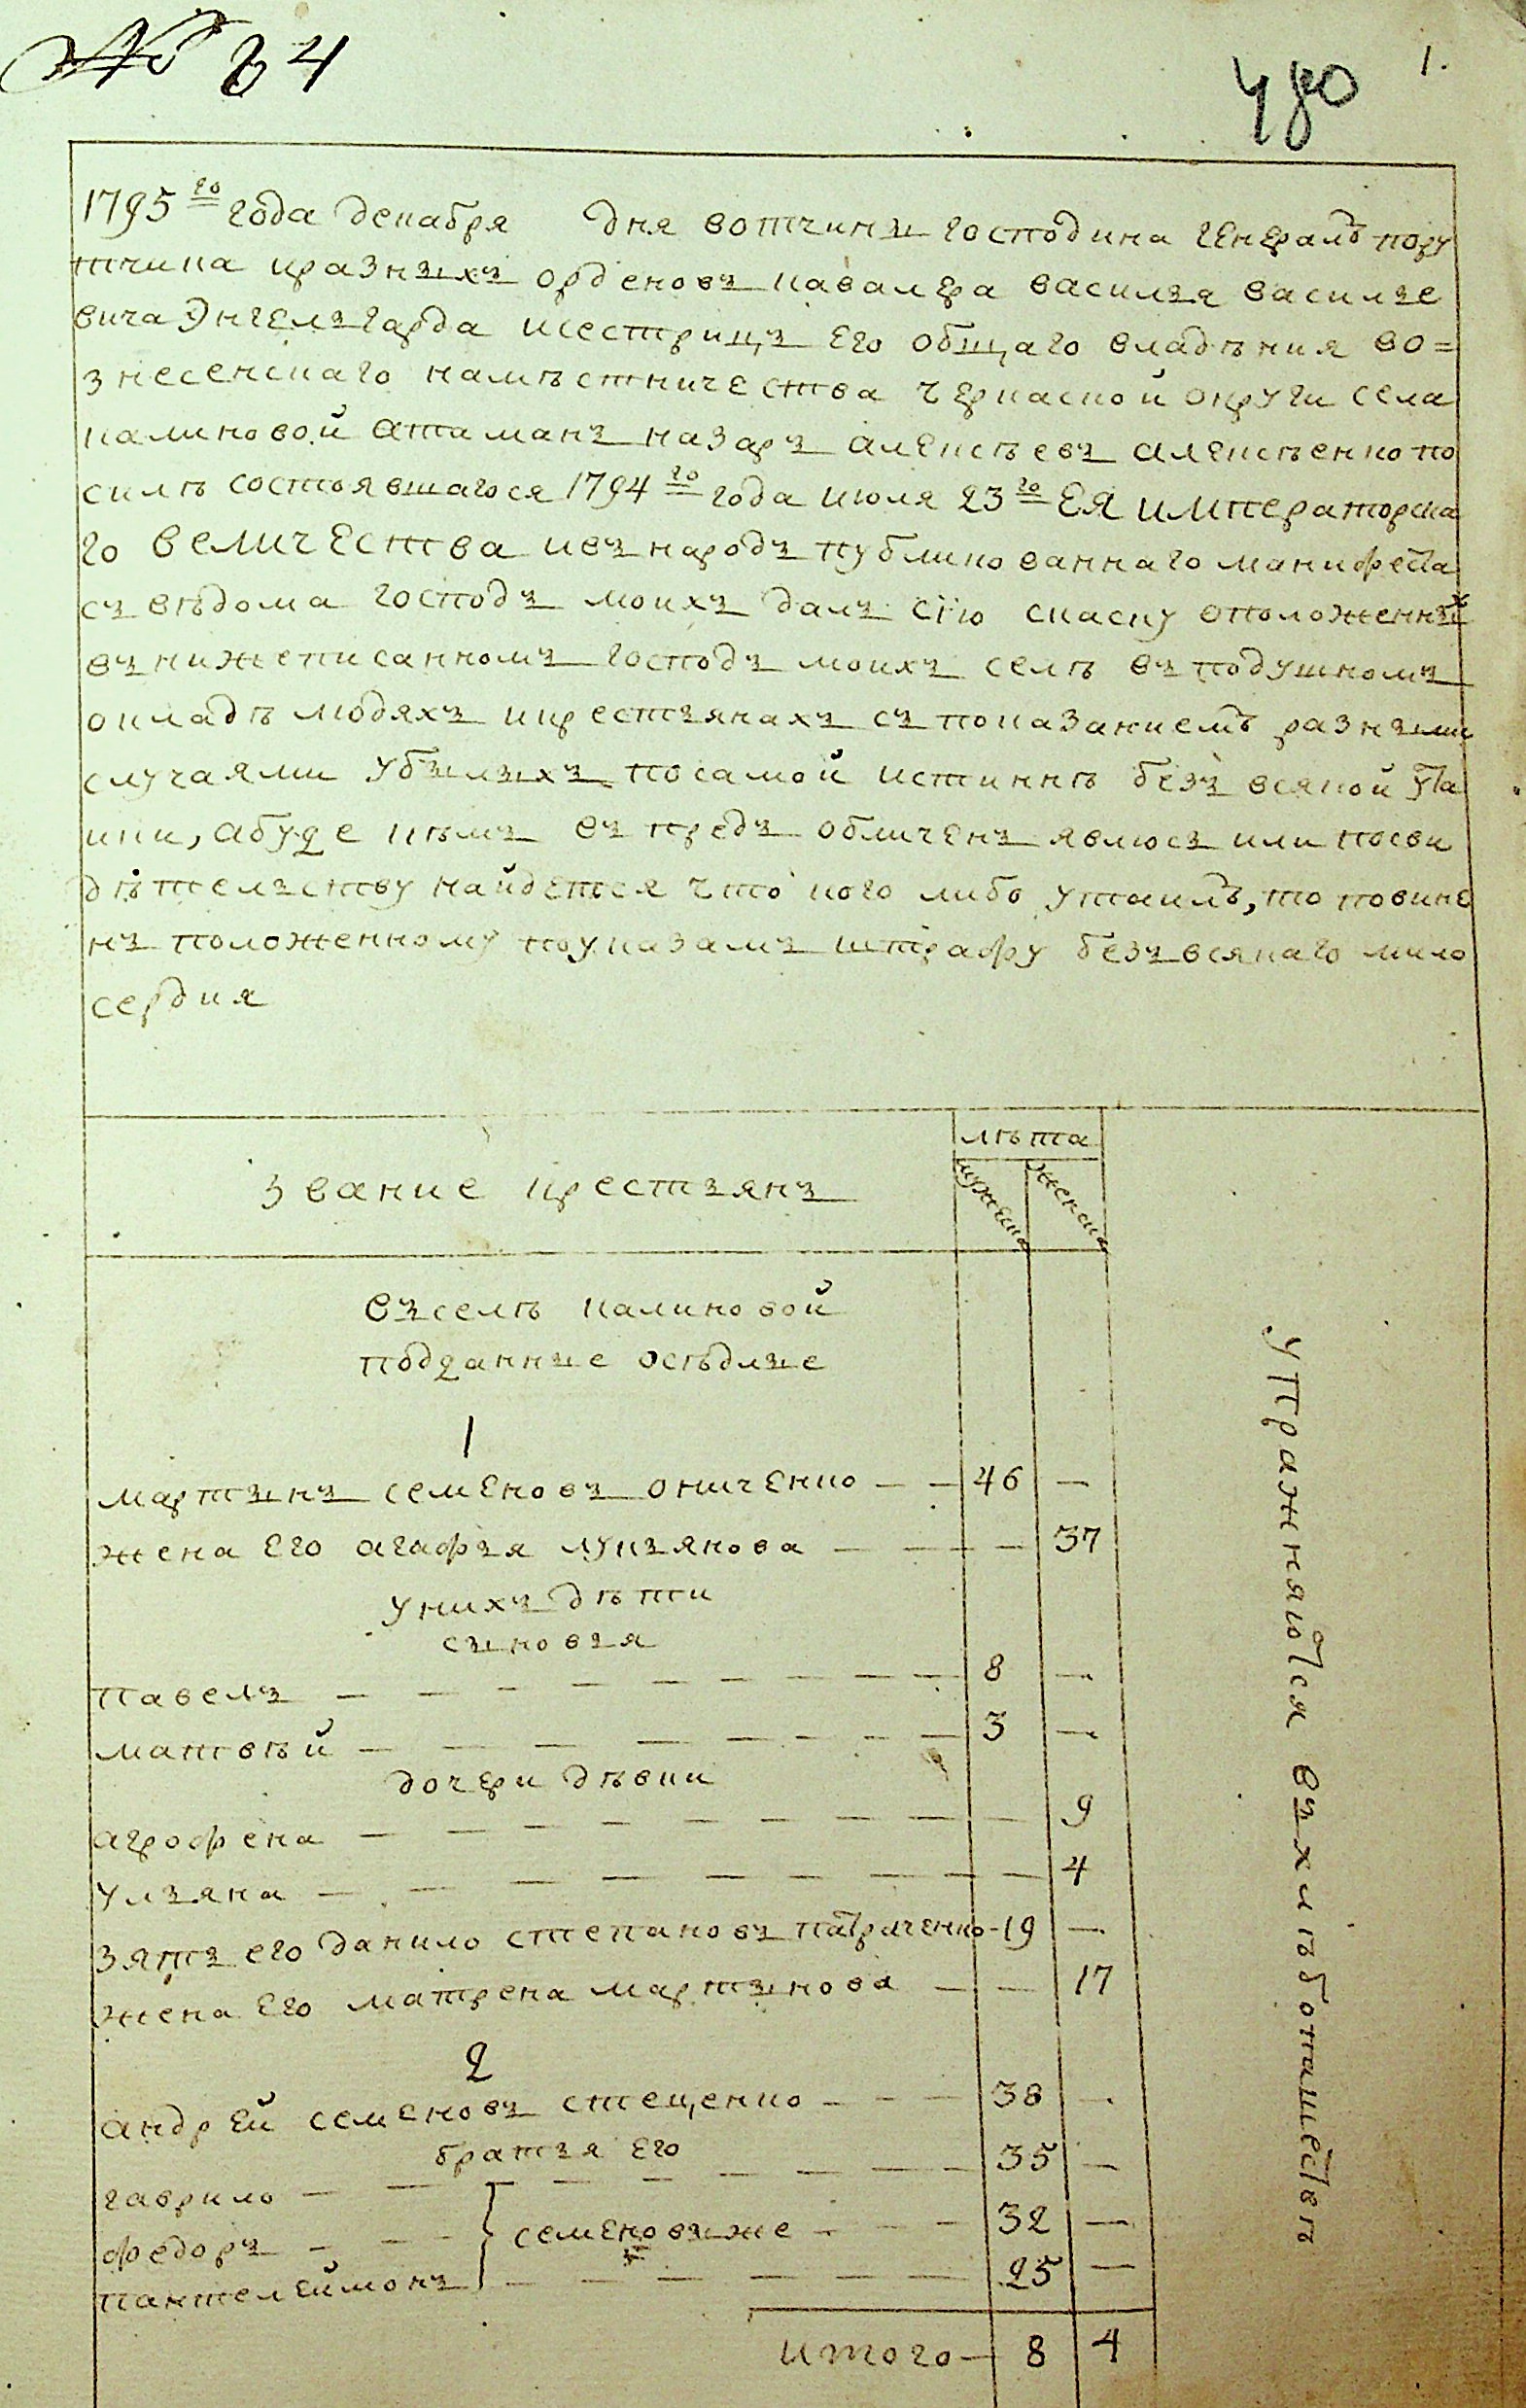 № 64
1.
1795го года декабря дня вотчины господина Генералъ пору
тчика иразныхъ орденовъ кавалера василья василье
вича Энгельгарда исестрицъ Его общаго владѣния во=
знесенскаго намѣстничества черкаской округи села
калиновой атаманъ назаръ алексѣевъ алексѣенко по
силѣ состоявшагося 1794го года июля 23го Ея императорска
го величества ивъ народъ публикованнаго манифеста
съ вѣдома господъ моихъ далъ сїю скаску оположенныхъ
въ нижеписанномъ господъ моихъ селѣ въ подушномъ
окладѣ людяхъ икрестьянахъ съ показаниемъ разными
случаями убылыхъ посамой истиннѣ безъ всякой ута
ики, абуде кѣмъ въ предъ обличенъ явлюсь или посви
дѣтельству найдется что кого либо утаилъ, то повине
нъ положенному поуказамъ штрафу безъ всякаго мило
сердия
звание крестьянъ
лѣта
мужеска
женска
въ селѣ калиновой
подданные осѣдлые
1
мартынъ семеновъ ониченко — — 46 —
жена Его агафья лукьянова — — — 37
унихъ дѣти
сыновья
павелъ — — — — — — — — 8 —
матвѣй — — — — — — — — 3 —
дочери дѣвки
агрофена — — — — — — — — — 9
ульяна — — — — — — — — — 4
зять его данило степановъ патриченко - 19 —
жена Его матрена мартынова — — 17
2
андрей семеновъ стеценко — — — 38 —
братья Его
гаврило — — — — — — — — 35 —
федоръ — — — семеновы же — — — 32 —
пантелеймонъ — — — — — — 25 —
итого — 8 4
упражняются въ хлѣбопашествѣ